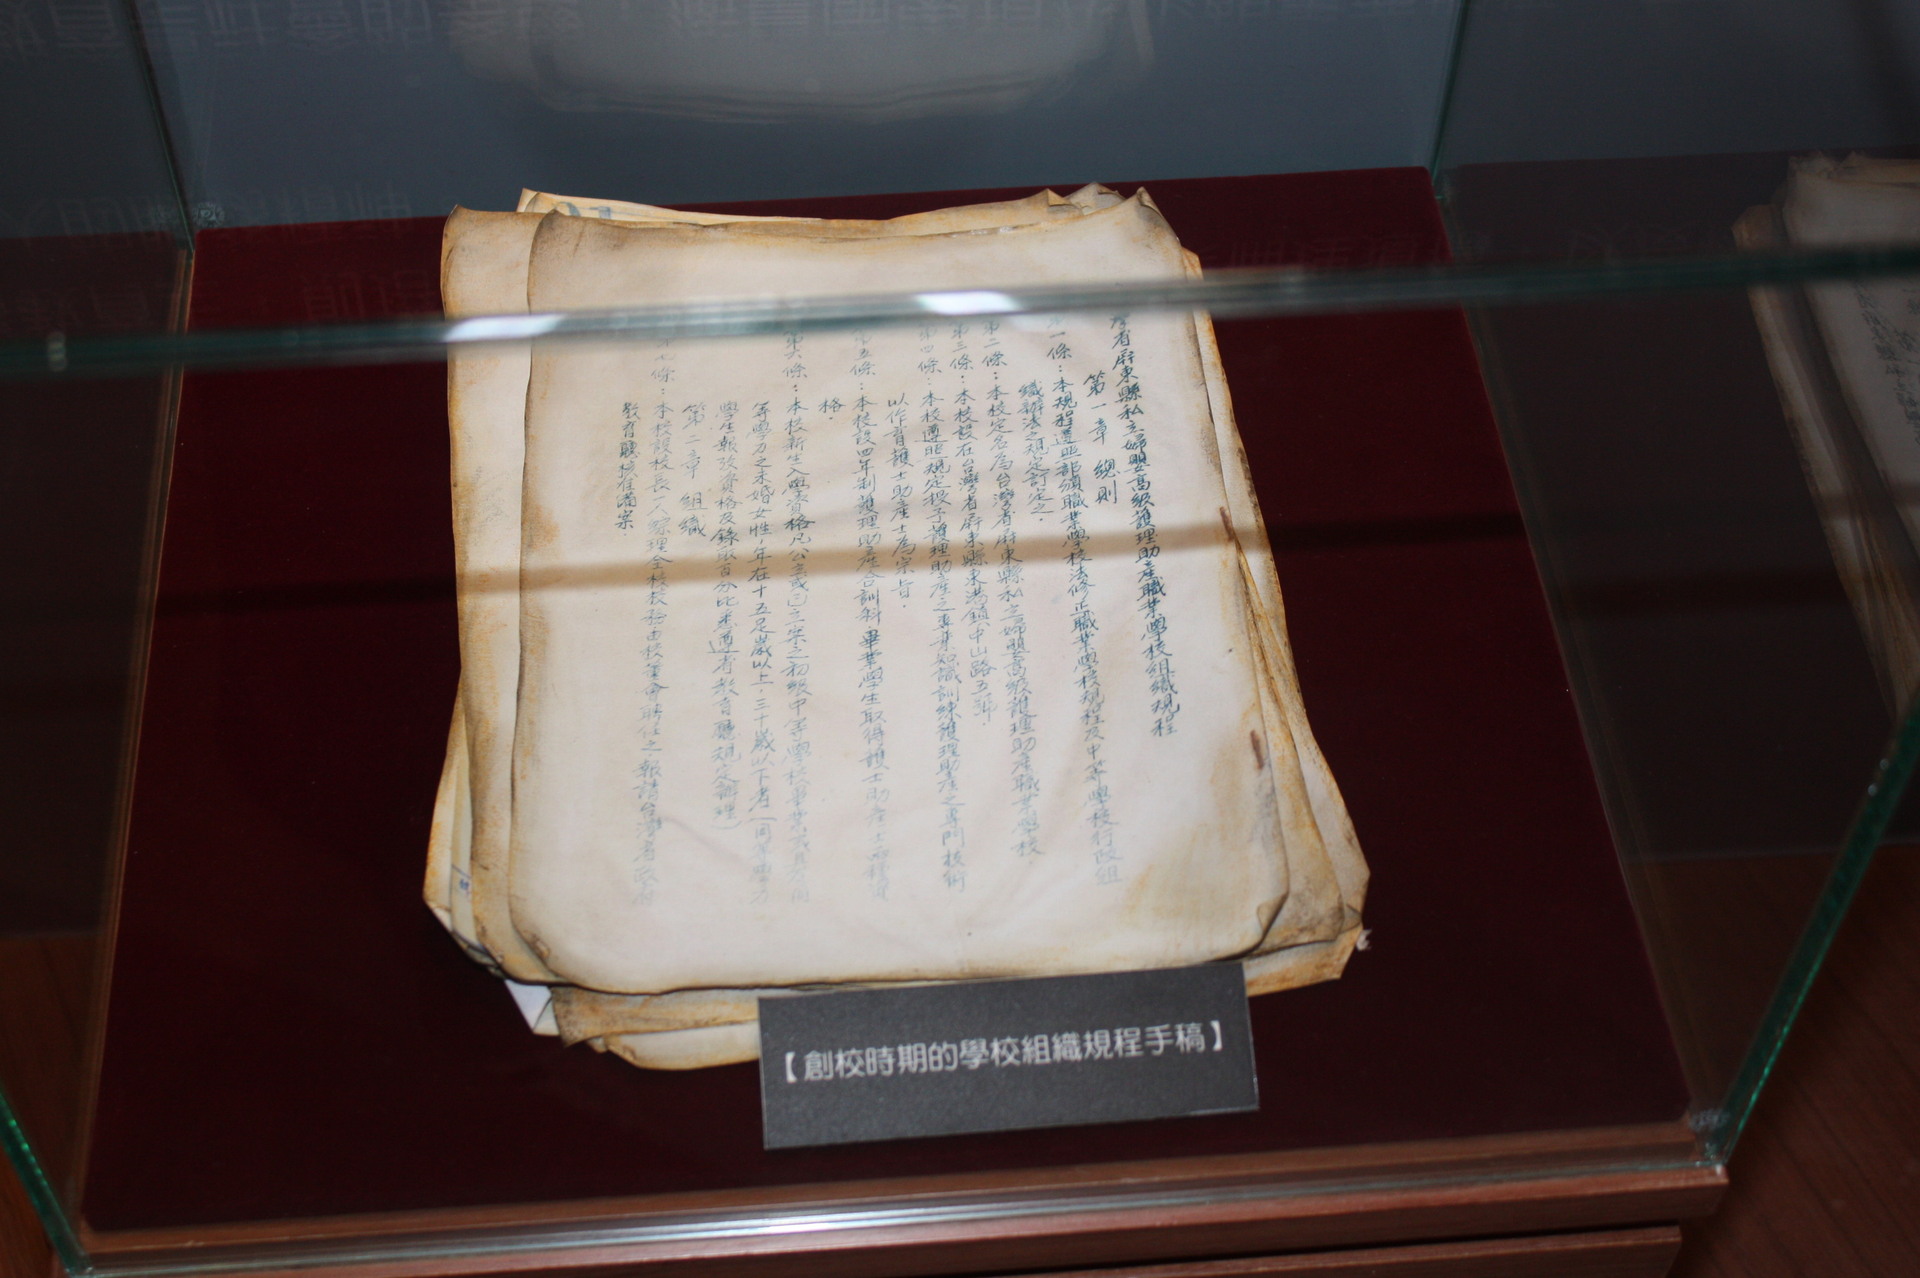 省屏東縣私立婦嬰高級護理助產職業學校組織規程
第一章 總則
第一條：本規程遵照部頒職業學校法修正職業學校規程及中等學校行政組
織辦法之規定訂定之．
第二條：本校定名為台灣省屏東縣私立婦嬰高級護理助產職業學校．
第三條：本校設在台灣省屏東縣東港鎮中山路五號．
第四條：本校遵照規定授予護理助產之專業知識訓練護理助產之專門技術
以作育護士助產士為宗旨．
第五條：本校設四年制護理助產合訓科．畢業學生取得護士助產士兩種資
格．
第六條：本校新生入學資格凡公立或已立案之初級中等學校畢業或具有同
等學力之未婚女性，年在十五足歲以上．三十歲以下者（同等學力
學生報考資格及錄取百分比悉遵省教育廳規定辦理）
第二章 組織
第七條：本校設校長一人綜理全校校務由校董會聘任之．報請台灣省政府
教育廳核准備案．
【創校時期的學校組織規程手稿】